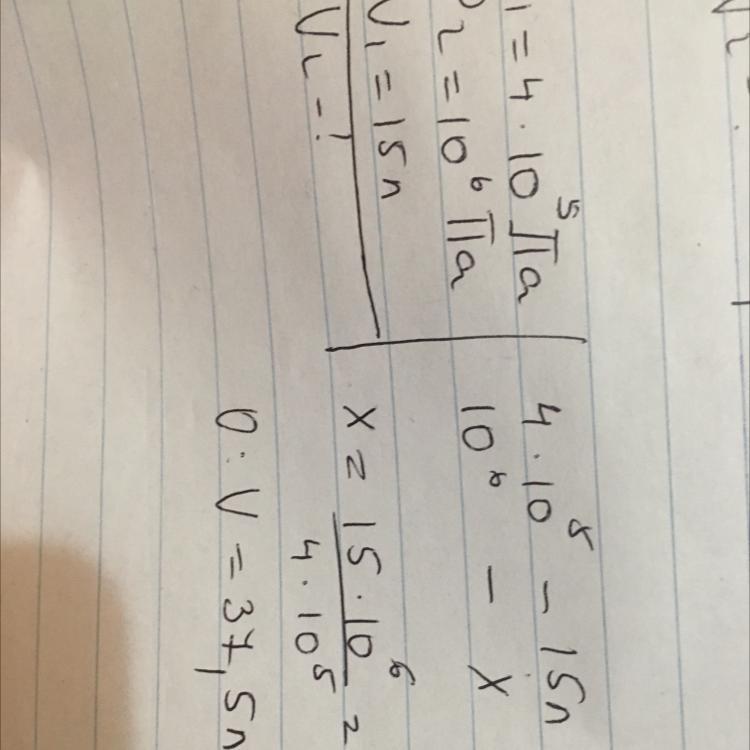 1 = 4 · 10⁵ Па
2 = 10⁶ Па
V₁ = 15л
V₂ - ?
4 · 10⁵ - 15л
10⁶ - x
x = 15 · 10⁶ / 4 · 10⁵ =
О: V = 37,5л